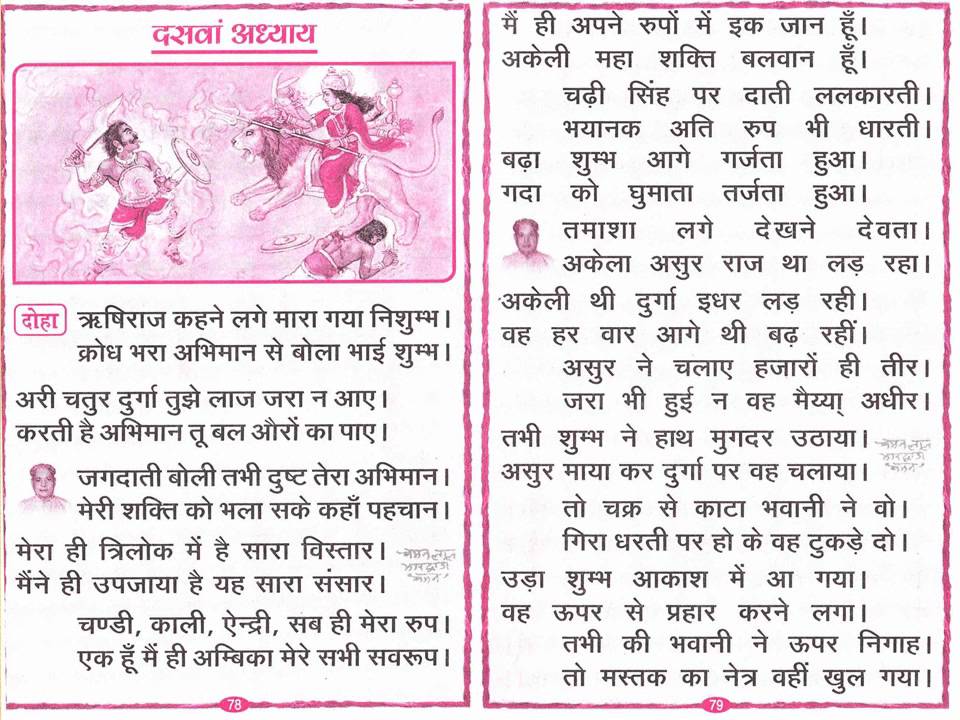 दसवां अध्याय
दोहा ऋषिराज कहने लगे मारा गया निशुम्भ।
क्रोध भरा अभिमान से बोला भाई शुम्भ।
अरी चतुर दुर्गा तुझे लाज जरा न आए।
करती है अभिमान तू बल औरों का पाए।
जगदाती बोली तभी दुष्ट तेरा अभिमान।
मेरी शक्ति को भला सके कहाँ पहचान।
मेरा ही त्रिलोक में है सारा विस्तार।
मैंने ही उपजाया है यह सारा संसार।
चण्डी, काली, ऐन्द्री, सब ही मेरा रुप।
एक हूँ मैं ही अम्बिका मेरे सभी सवरूप।
78
मैं ही अपने रुपों में इक जान हूँ।
अकेली महा शक्ति बलवान हूँ।
चढ़ी सिंह पर दाती ललकारती।
भयानक अति रुप भी धारती।
बढ़ा शुम्भ आगे गर्जता हुआ।
गदा को घुमाता तर्जता हुआ।
तमाशा लगे देखने देवता।
अकेला असुर राज था लड़ रहा।
अकेली थी दुर्गा इधर लड़ रही।
वह हर वार आगे थी बढ़ रहीं।
असुर ने चलाए हजारों ही तीर।
जरा भी हुई न वह मैय्या् अधीर।
तभी शुम्भ ने हाथ मुगदर उठाया।
असुर माया कर दुर्गा पर वह चलाया।
तो चक्र से काटा भवानी ने वो।
गिरा धरती पर हो के वह टुकड़े दो।
उड़ा शुम्भ आकाश में आ गया।
वह ऊपर से प्रहार करने लगा।
तभी की भवानी ने ऊपर निगाह।
तो मस्तक का नेत्र वहीं खुल गया।
79